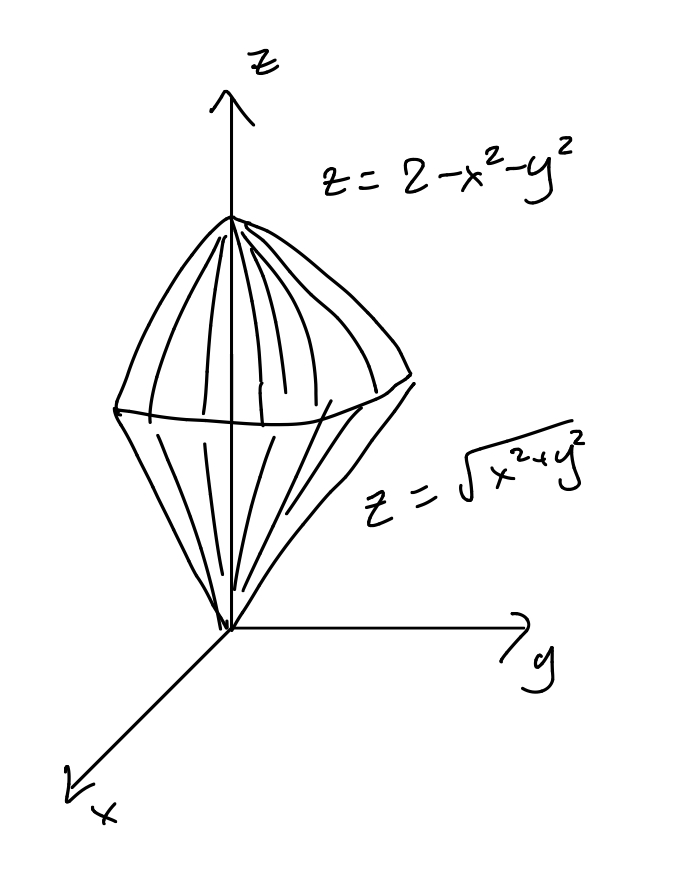 z
z = 2 - x² - y²
z = √(x² + y²)
y
x